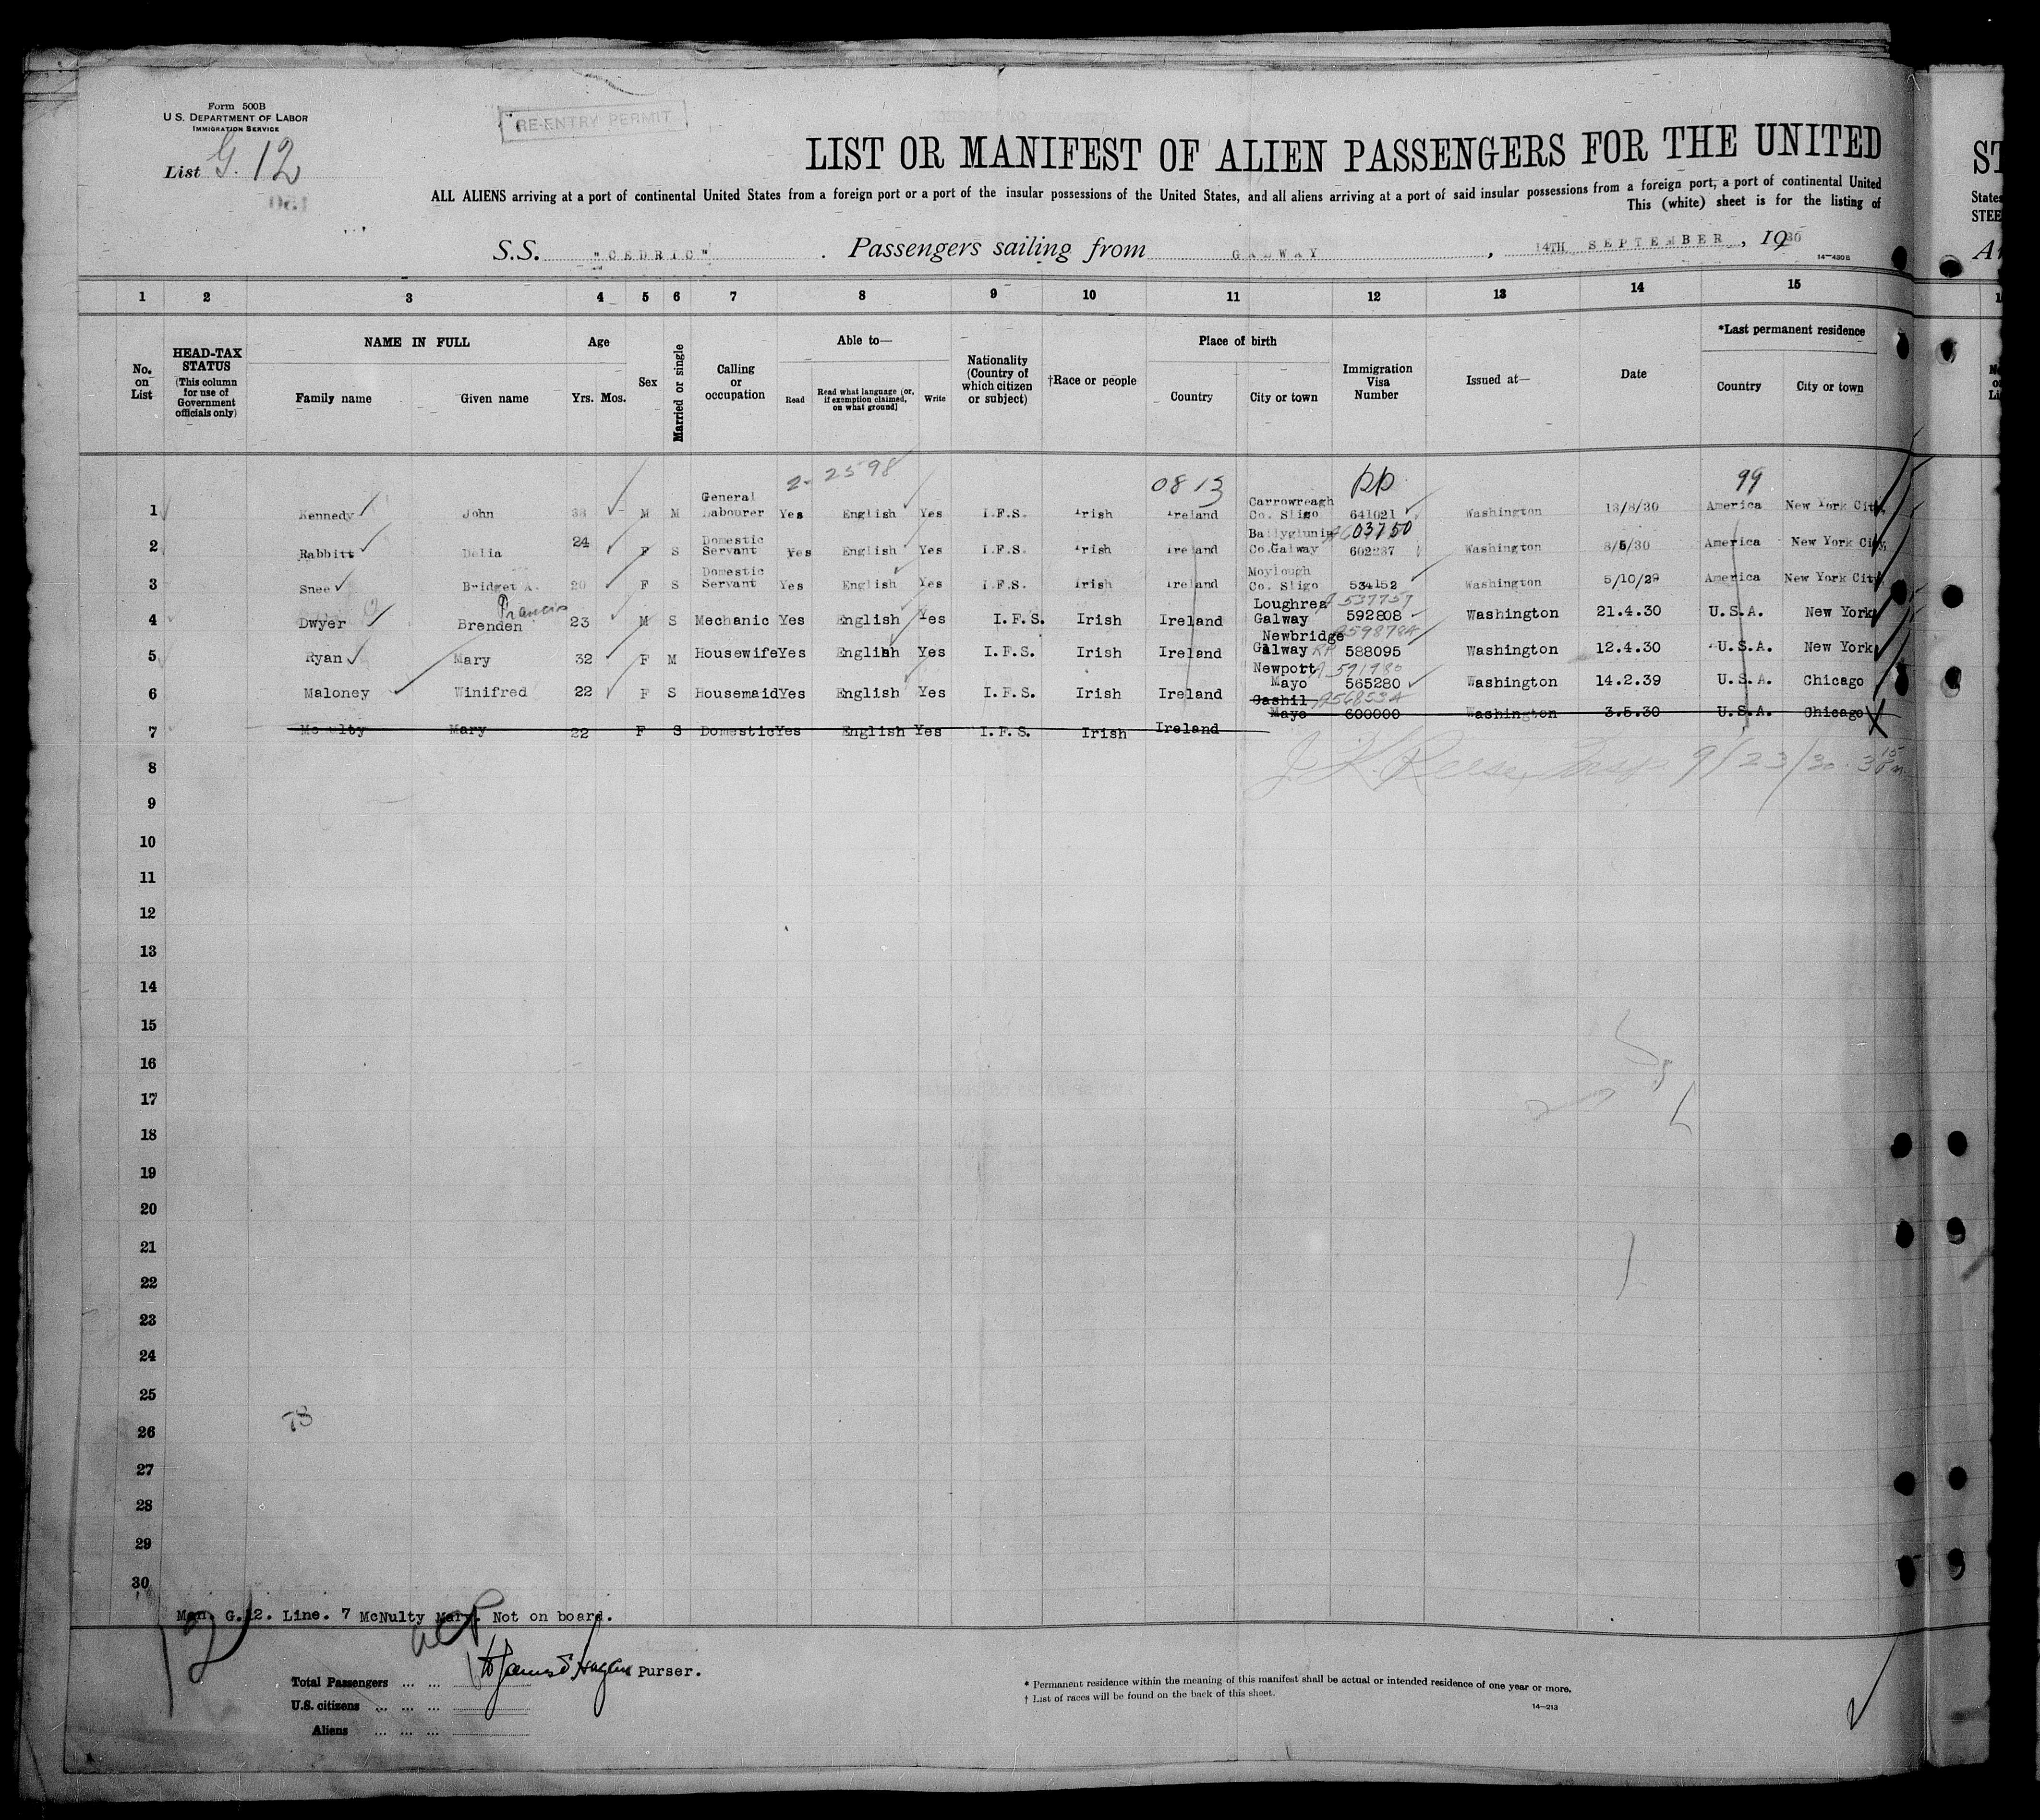 Form 500B
U.S. DEPARTMENT OF LABOR
IMMIGRATION SERVICE
RE-ENTRY PERMIT
List G. 12
LIST OR MANIFEST OF ALIEN PASSENGERS FOR THE UNITED
ALL ALIENS arriving at a port of continental United States from a foreign port or a port of the insular possessions of the United States, and all aliens arriving at a port of said insular possessions from a foreign port, a port of continental United
This (white) sheet is for the listing of
S.S. "CEDRIC" . Passengers sailing from GALWAY , 14TH SEPTEMBER , 1930
14—430B
1 2 3 4 5 6 7 8 9 10 11 12 13 14 15
No. on List
HEAD-TAX STATUS (This column for use of Government officials only)
NAME IN FULL
Family name Given name
Age
Yrs. Mos.
Sex
Married or single
Calling or occupation
Able to—
Read
Read what language [or, if exemption claimed, on what ground]
Write
Nationality (Country of which citizen or subject)
†Race or people
Place of birth
Country City or town
Immigration Visa Number
Issued at—
Date
*Last permanent residence
Country City or town
2- 2598 0813 RP 99
1 Kennedy John 38 M M General Labourer Yes English Yes I.F.S. Irish Ireland Carrowreagh Co. Sligo 641021 Washington 13/8/30 America New York City,
2 Rabbitt Delia 24 F S Domestic Servant Yes English Yes I.F.S. Irish Ireland Ballyglunin Co.Galway 603750 602237 Washington 8/5/30 America New York City,
3 Snee Bridget A. 20 F S Domestic Servant Yes English Yes I.F.S. Irish Ireland Moylough Co. Sligo 534152 Washington 5/10/29 America New York City,
4 Dwyer Brenden Francis 23 M S Mechanic Yes English Yes I.F.S. Irish Ireland Loughrea Galway A537757 592808 Washington 21.4.30 U.S.A. New York
5 Ryan Mary 32 F M Housewife Yes English Yes I.F.S. Irish Ireland Newbridge Galway RP 588095 Washington 12.4.30 U.S.A. New York
6 Maloney Winifred 22 F S Housemaid Yes English Yes I.F.S. Irish Ireland Newport Mayo 565280 Washington 14.2.39 U.S.A. Chicago
7 McNulty Mary 22 F S Domestic Yes English Yes I.F.S. Irish Ireland Cashil Mayo 600000 Washington 3.5.30 U.S.A. Chicago X
8
9/23/30 3 15 Pm.
9
10
11
12
13
14
15
16
17
18
19
20
21
22
23
24
25
78
26
27
28
29
30
Man. G.12. Line. 7 McNulty Mary. Not on board.
Purser.
Total Passengers ... ...
U.S. citizens ... ... ...
Aliens ... ... ...
* Permanent residence within the meaning of this manifest shall be actual or intended residence of one year or more.
† List of races will be found on the back of this sheet.
14—213
ST
States
STEE